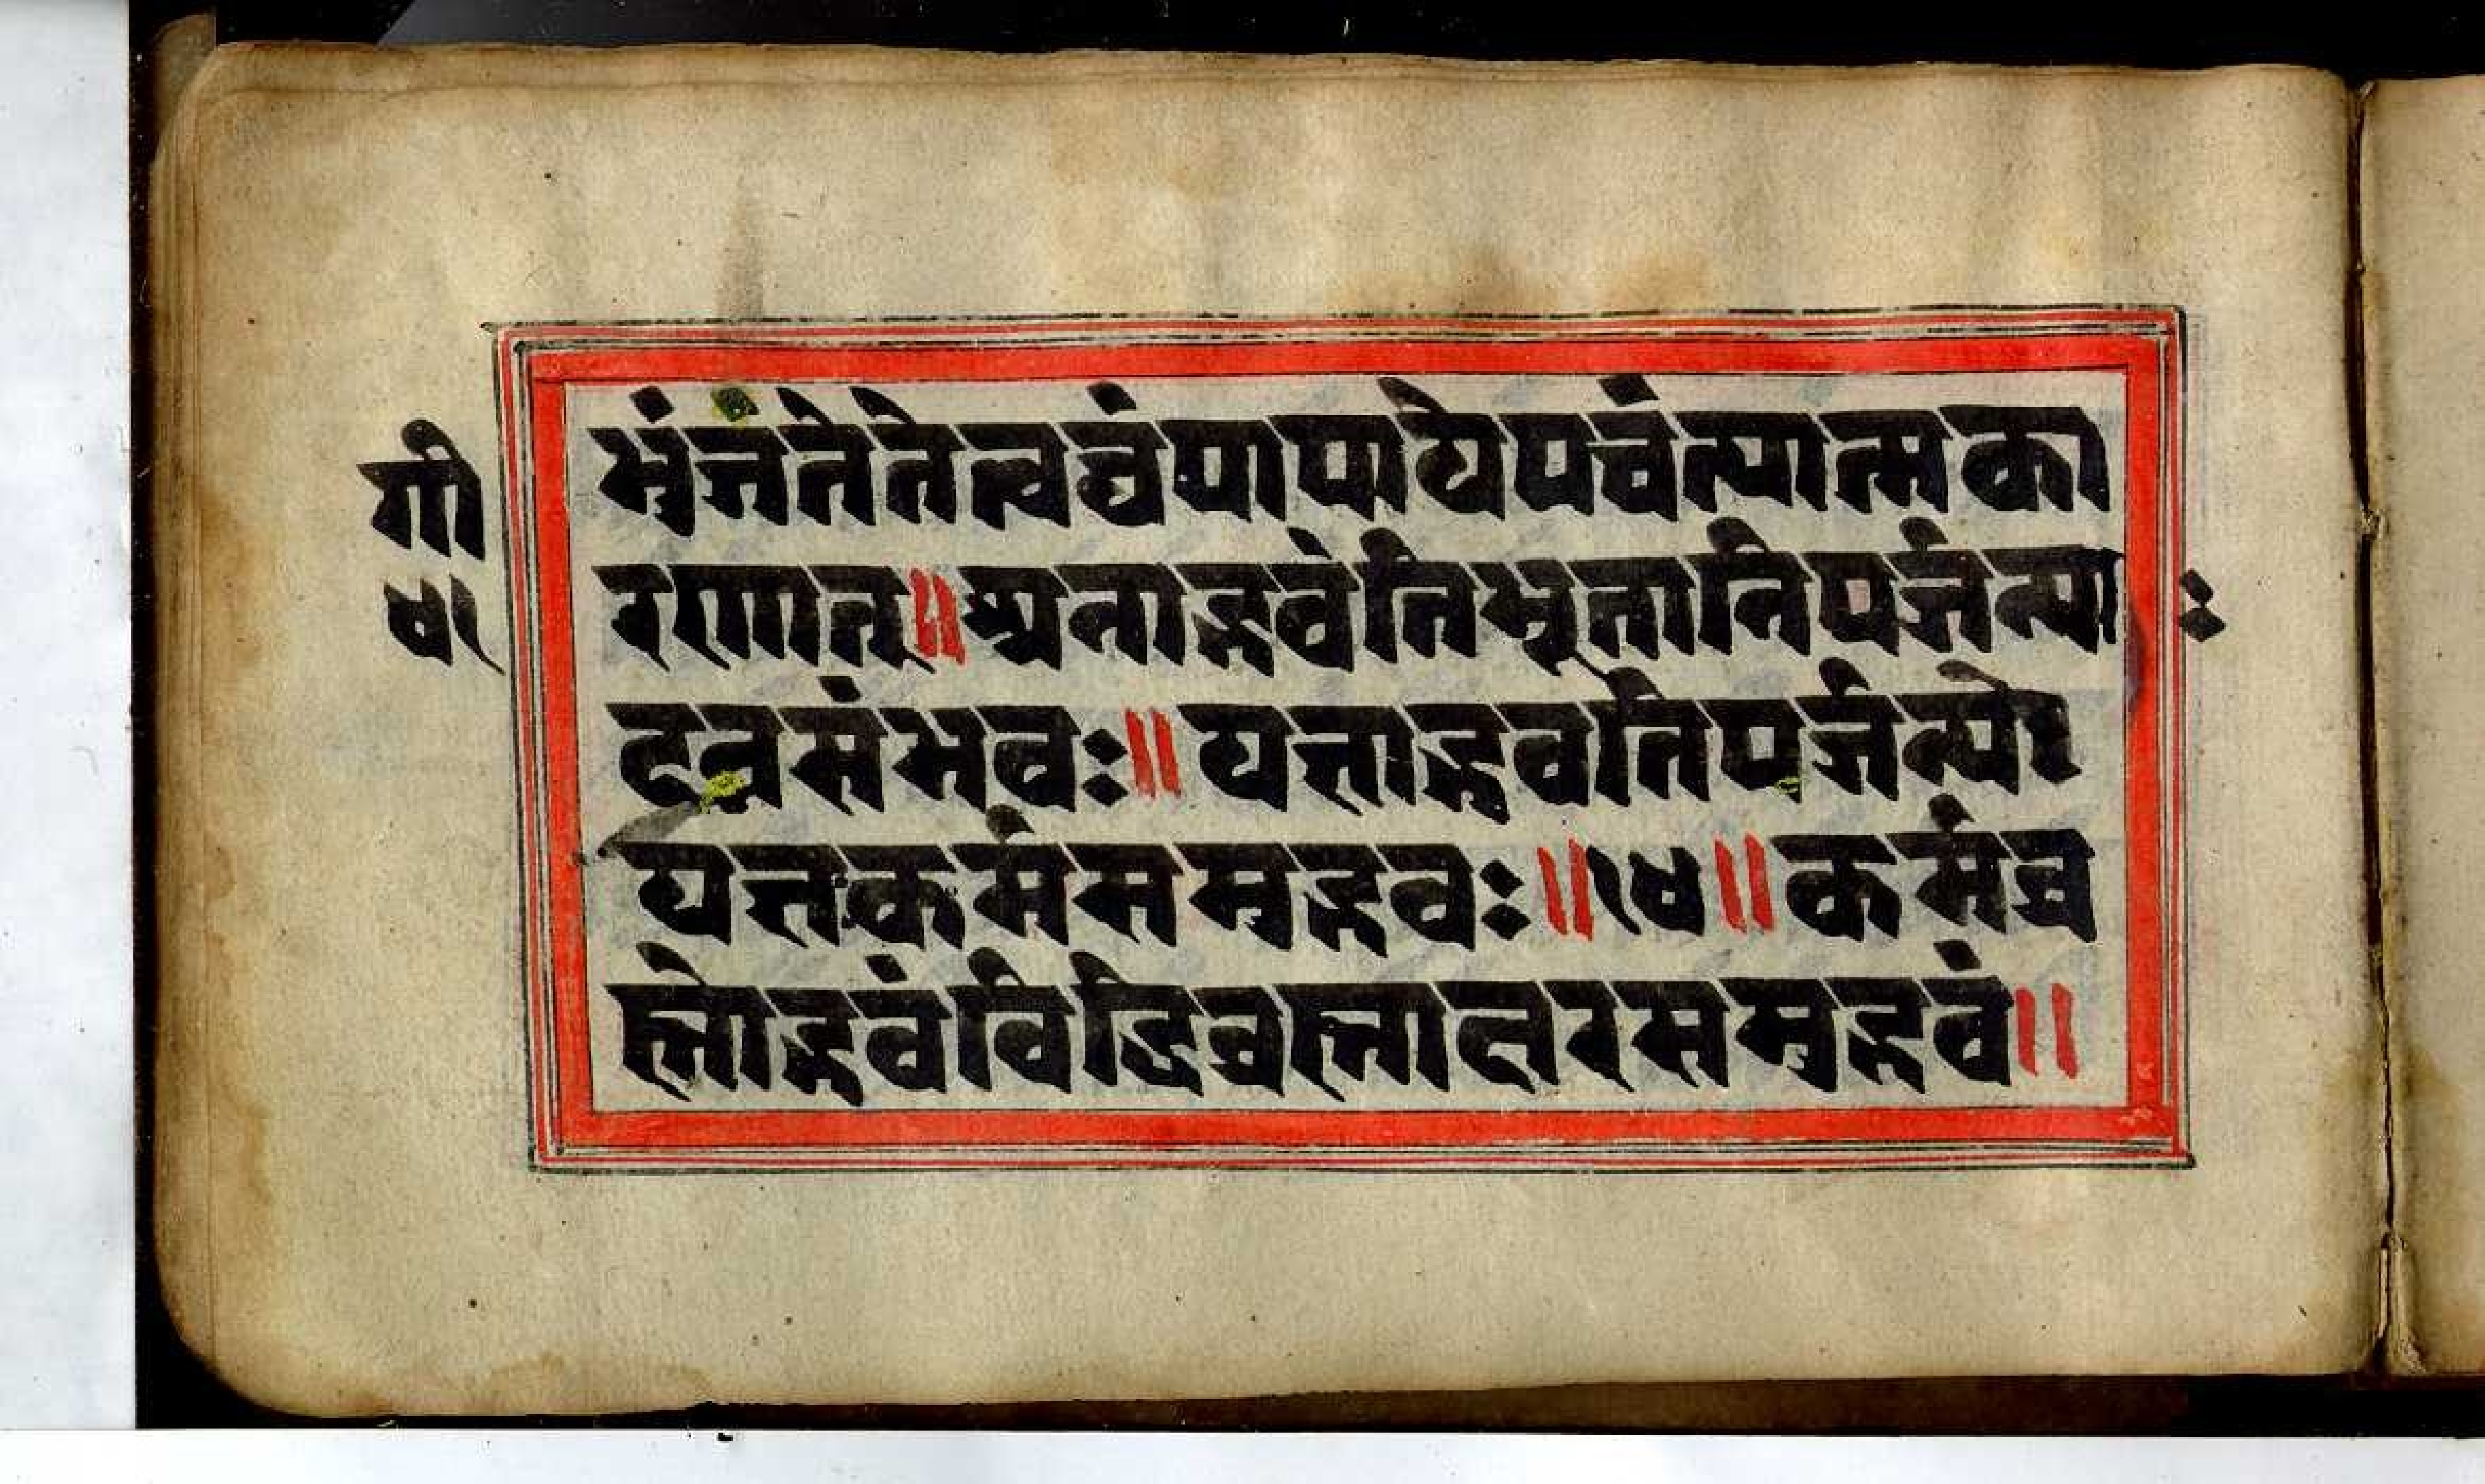 गी
४१
भुंजतेतेत्वघंपापायेपचंत्यात्मका
रणात्॥अन्नाद्भवंतिभूतानिपर्जन्या
दन्नसंभवः॥यज्ञाद्भवतिपर्जन्यो
यज्ञःकर्मसमुद्भवः॥१४॥कर्मब्र
ह्मोद्भवंविद्धिब्रह्माक्षरसमुद्भवं॥